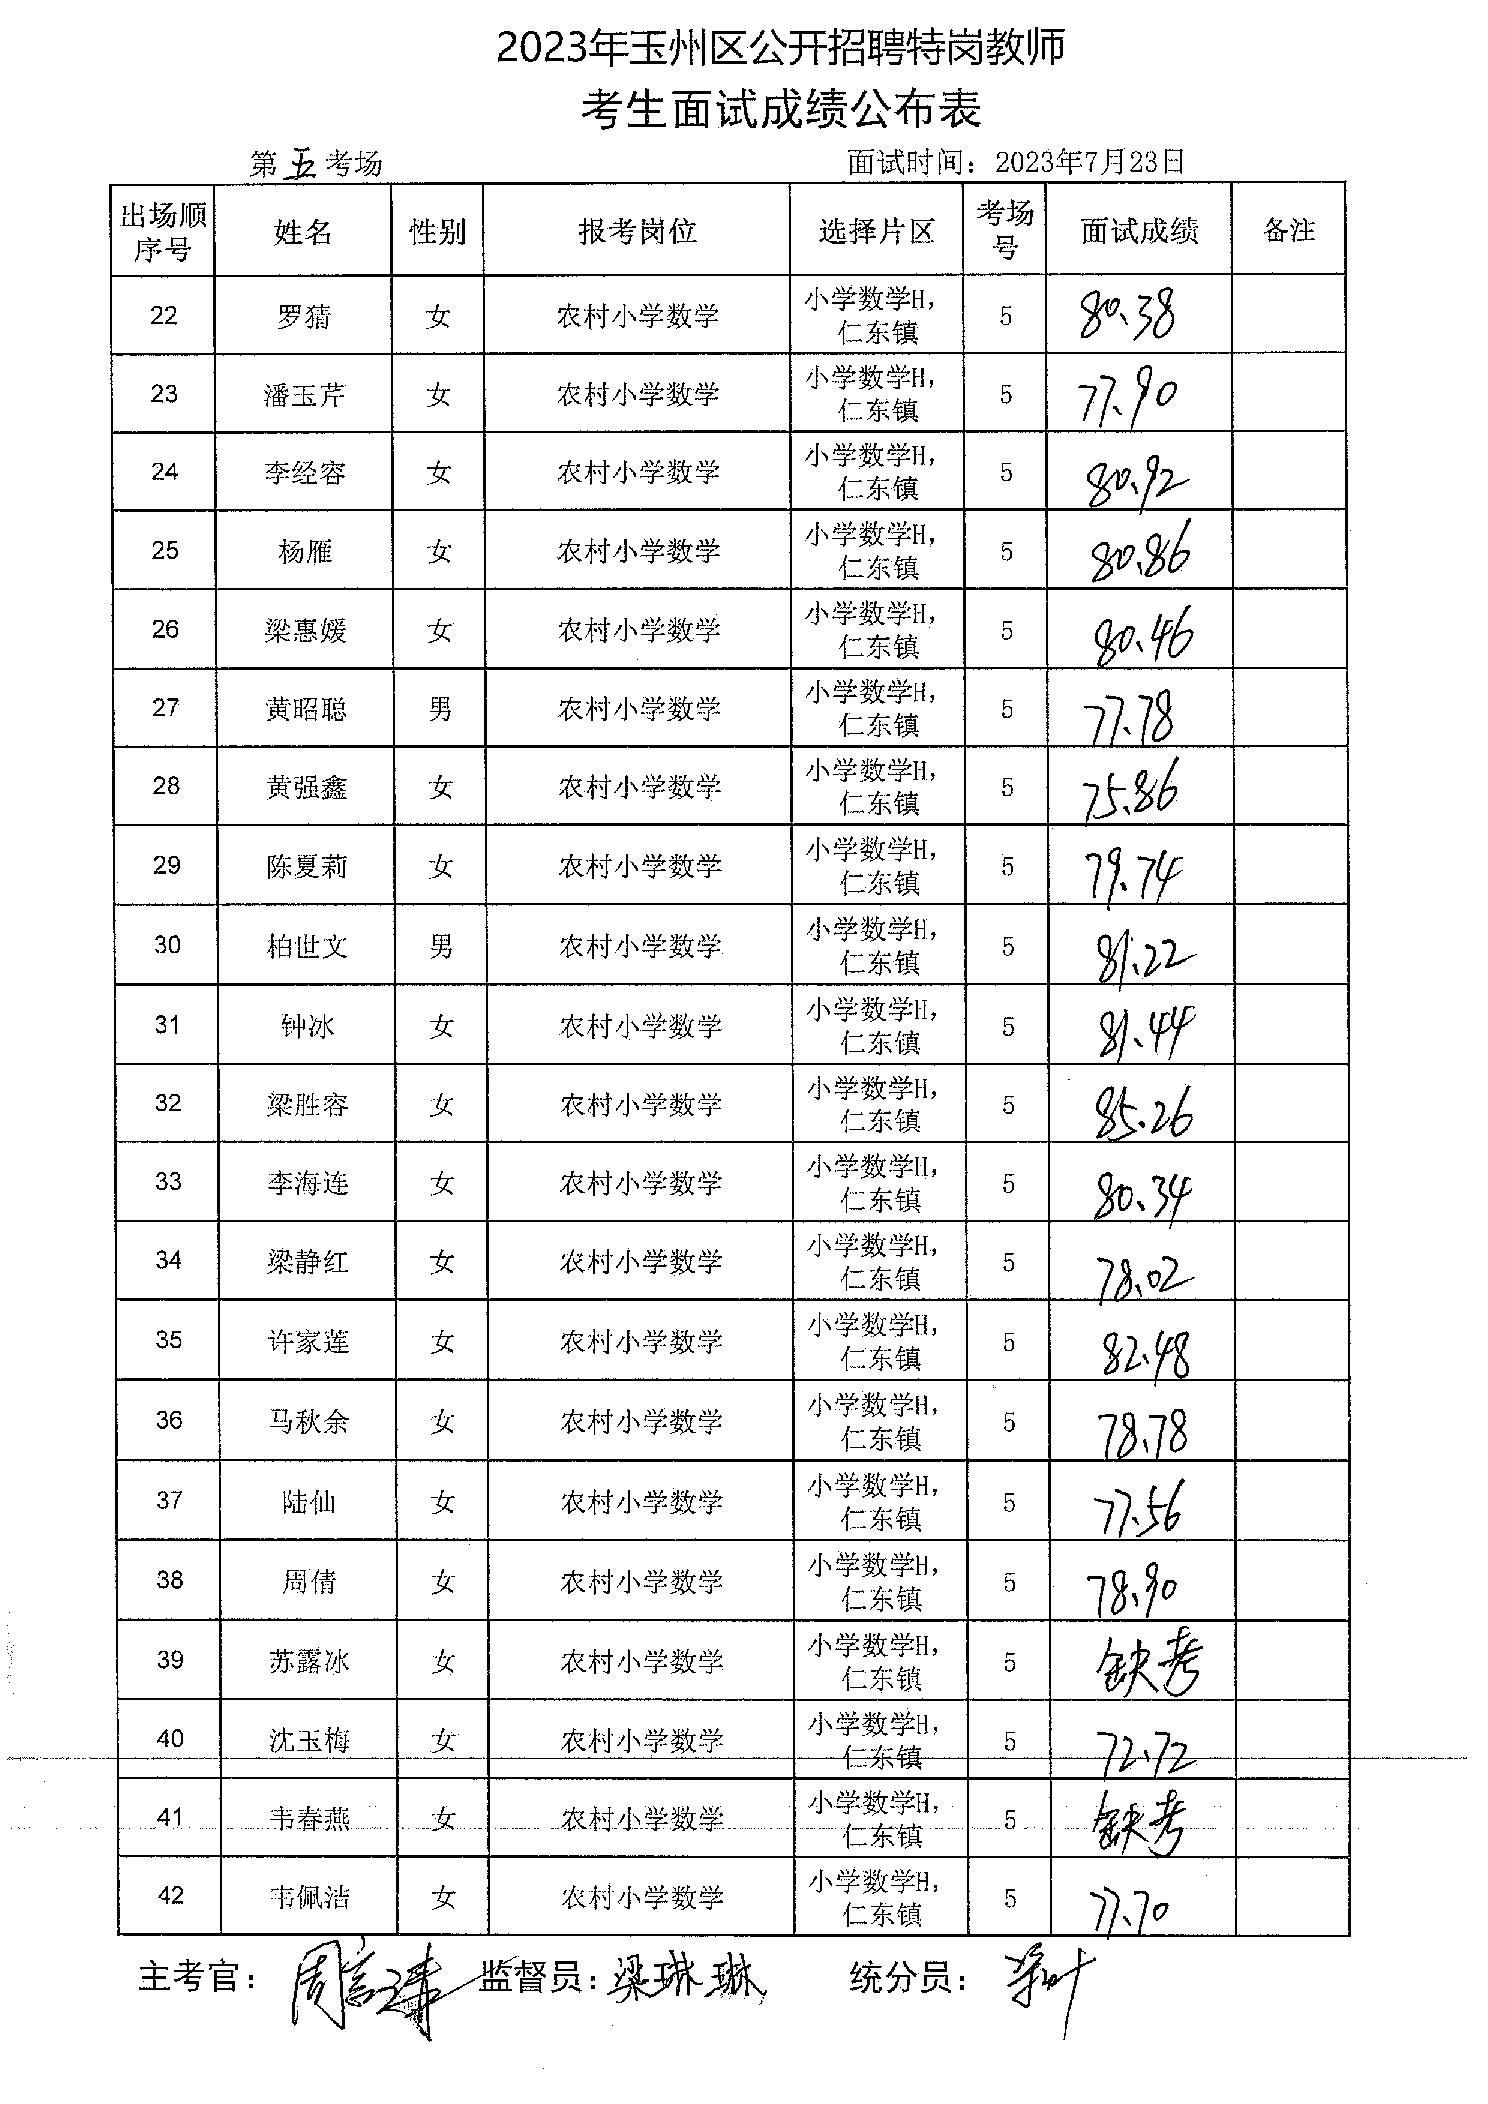 2023年玉州区公开招聘特岗教师
考生面试成绩公布表
第五考场 面试时间：2023年7月23日
出场顺序号 姓名 性别 报考岗位 选择片区 考场号 面试成绩 备注
22 罗猜 女 农村小学数学 小学数学H，仁东镇 5 80.38
23 潘玉芹 女 农村小学数学 小学数学H，仁东镇 5 77.90
24 李经容 女 农村小学数学 小学数学H，仁东镇 5 80.92
25 杨雁 女 农村小学数学 小学数学H，仁东镇 5 80.86
26 梁惠媛 女 农村小学数学 小学数学H，仁东镇 5 80.46
27 黄昭聪 男 农村小学数学 小学数学H，仁东镇 5 77.78
28 黄强鑫 女 农村小学数学 小学数学H，仁东镇 5 75.86
29 陈夏莉 女 农村小学数学 小学数学H，仁东镇 5 79.74
30 柏世文 男 农村小学数学 小学数学H，仁东镇 5 81.22
31 钟冰 女 农村小学数学 小学数学H，仁东镇 5 81.44
32 梁胜容 女 农村小学数学 小学数学H，仁东镇 5 85.26
33 李海连 女 农村小学数学 小学数学H，仁东镇 5 80.34
34 梁静红 女 农村小学数学 小学数学H，仁东镇 5 78.02
35 许家莲 女 农村小学数学 小学数学H，仁东镇 5 82.48
36 马秋余 女 农村小学数学 小学数学H，仁东镇 5 78.78
37 陆仙 女 农村小学数学 小学数学H，仁东镇 5 77.56
38 周倩 女 农村小学数学 小学数学H，仁东镇 5 78.90
39 苏露冰 女 农村小学数学 小学数学H，仁东镇 5 缺考
40 沈玉梅 女 农村小学数学 小学数学H，仁东镇 5 72.72
41 韦春燕 女 农村小学数学 小学数学H，仁东镇 5 缺考
42 韦佩洁 女 农村小学数学 小学数学H，仁东镇 5 77.70
主考官： 监督员：梁琳琳 统分员：